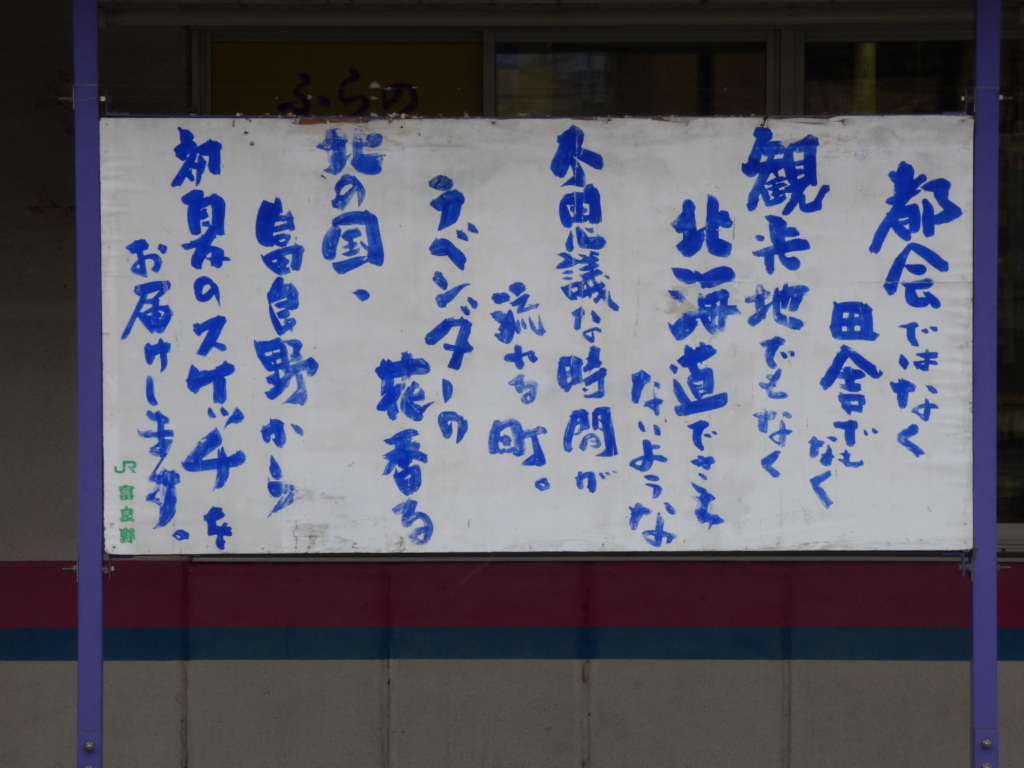 ふらの
都会ではなく
田舎でもなく
観光地でもなく
北海道でさえ
ないような
不思議な時間が
流れる町。
ラベンダーの
花香る
北の国、
富良野から
初夏のスケッチを
お届けします。
JR富良野